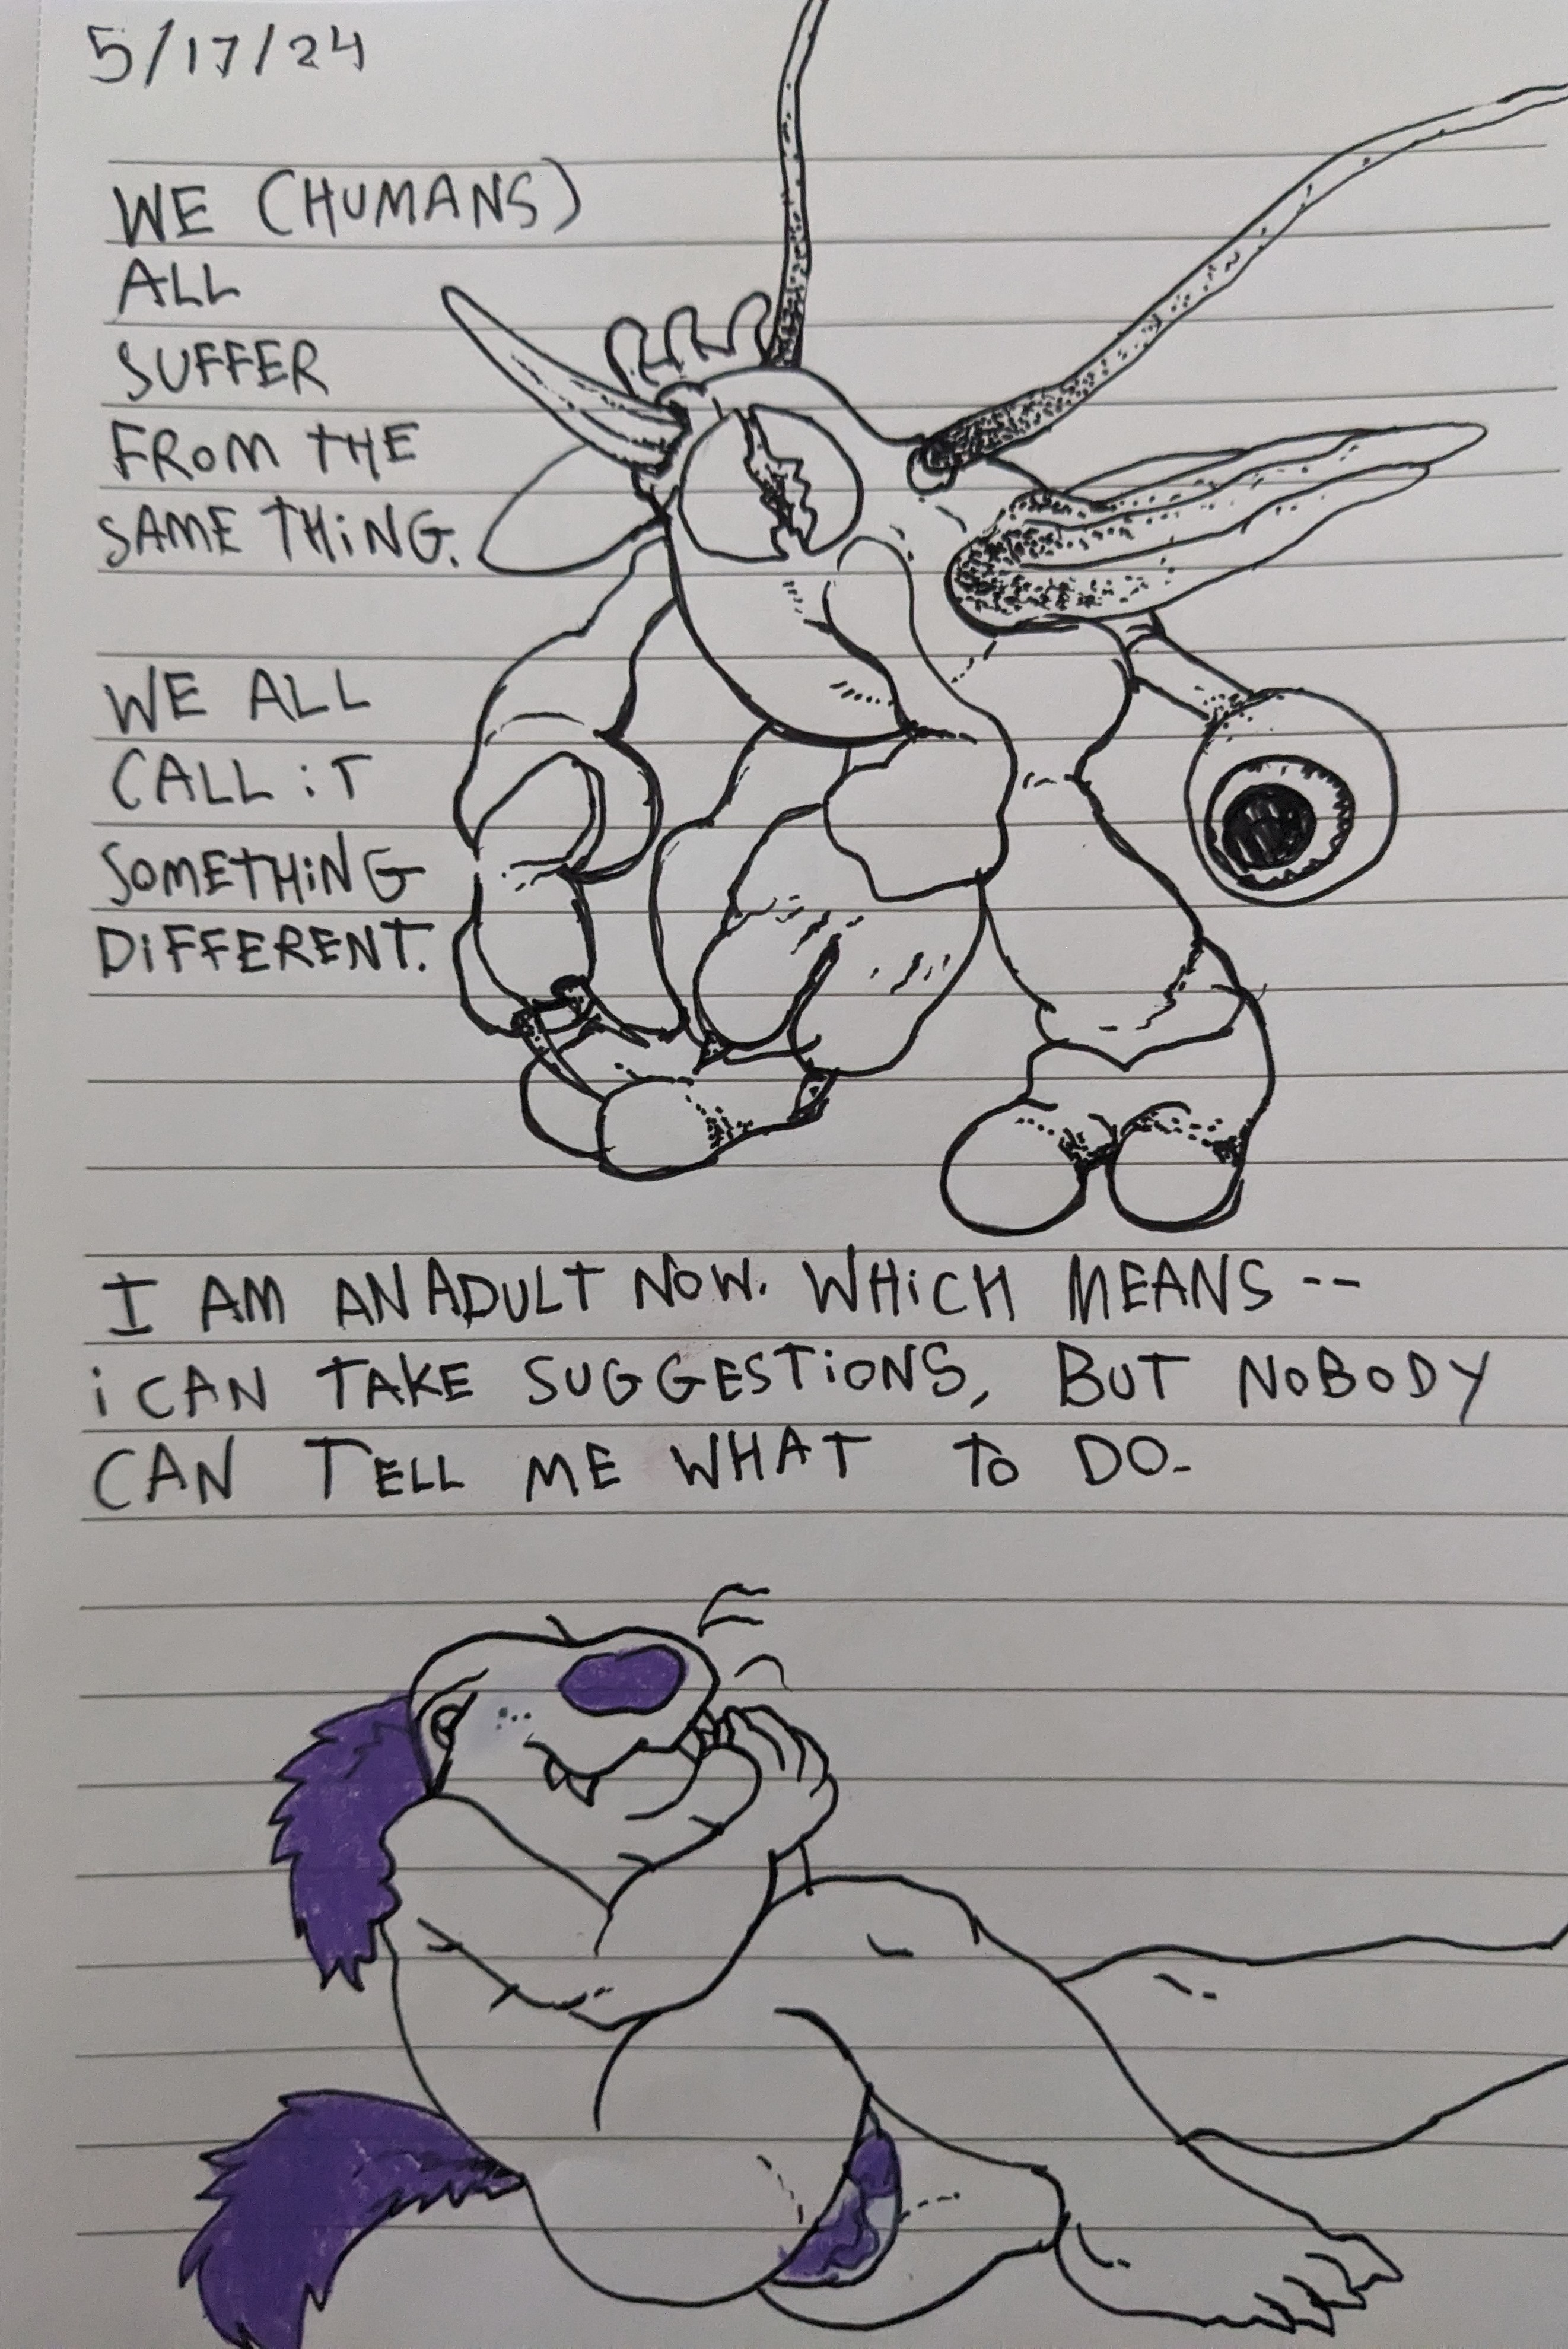 5/17/24
WE (HUMANS)
ALL
SUFFER
FROM THE
SAME THiNG.
WE ALL
CALL iT
SOMETHiNG
DiFFERENT.
I AM AN ADULT NOW. WHiCH MEANS --
i CAN TAKE SUGGESTiONS, BUT NOBODY
CAN TELL ME WHAT TO DO.